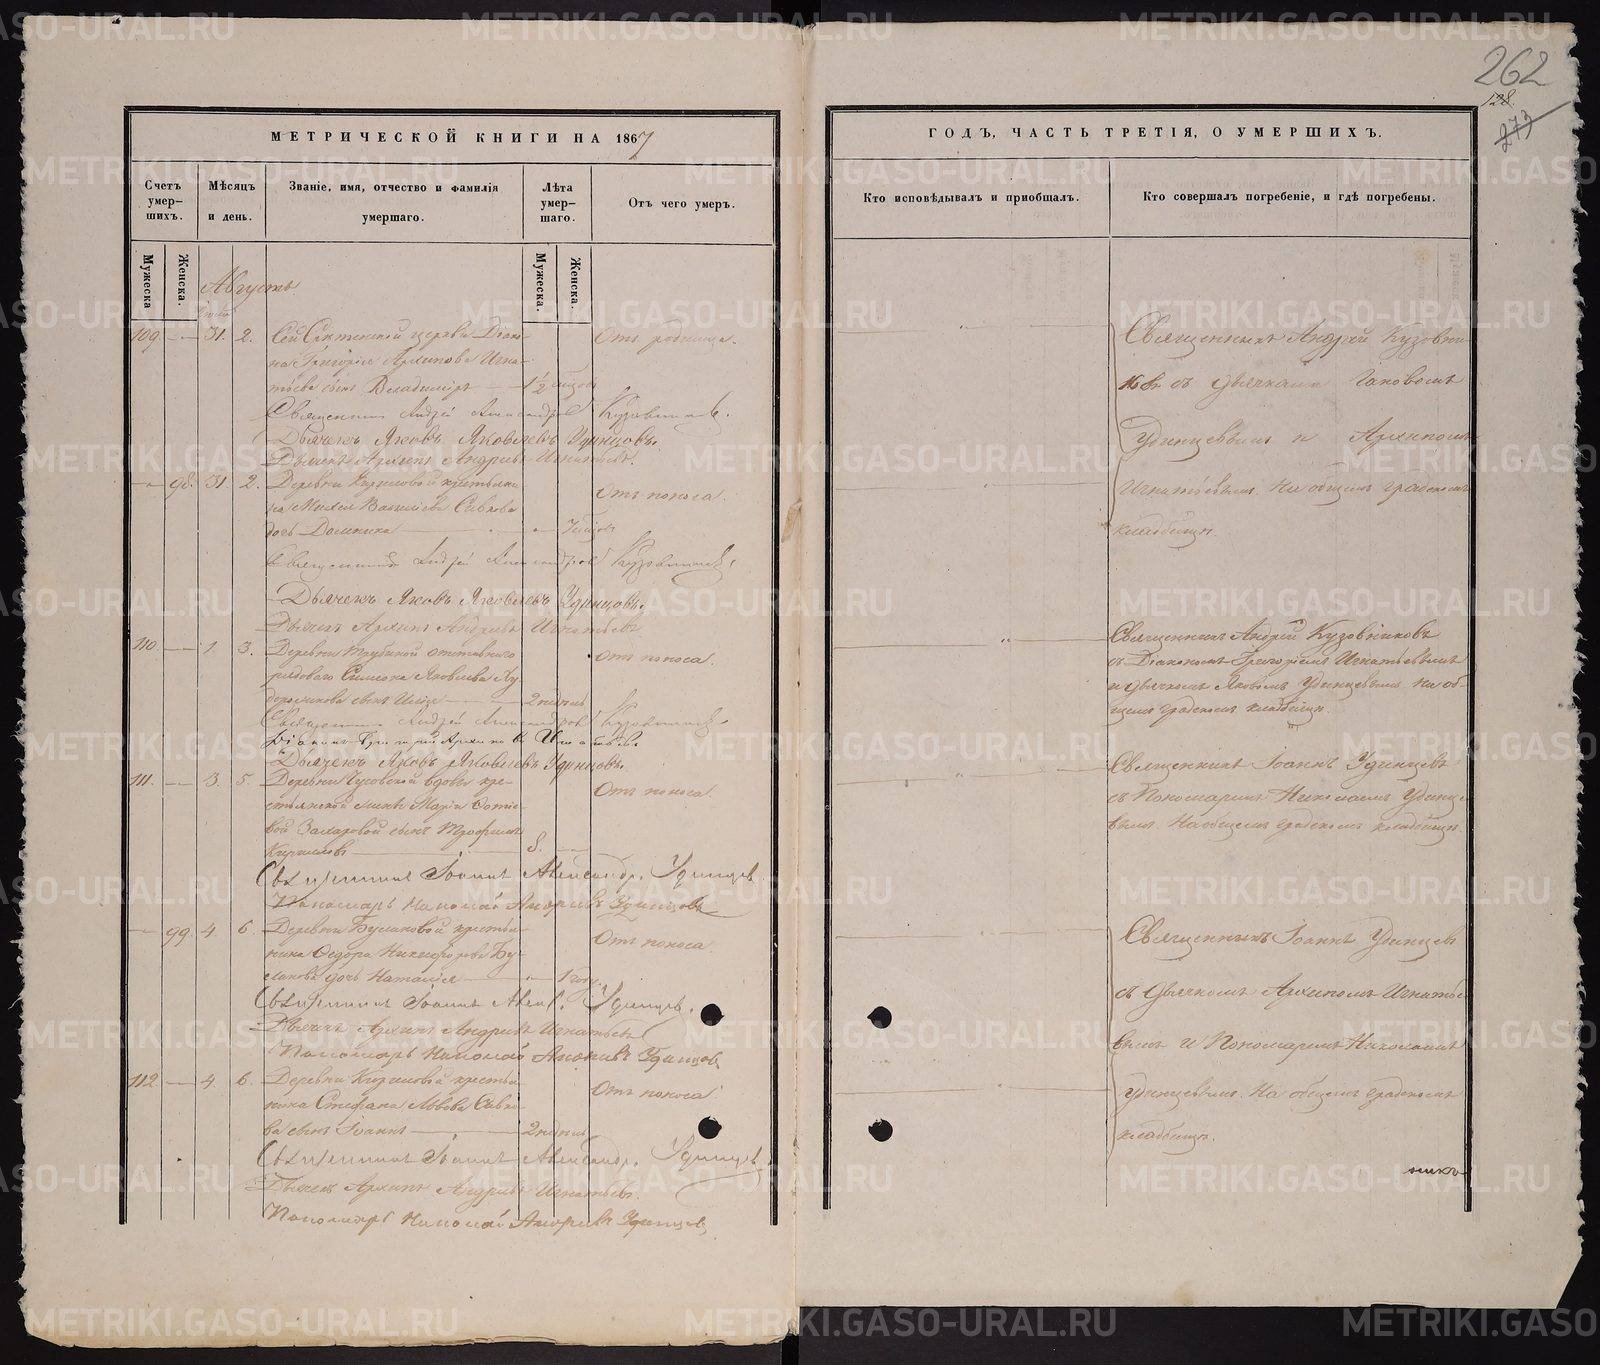 262
128.
273
МЕТРИЧЕСКОЙ КНИГИ НА 1867
ГОДЪ, ЧАСТЬ ТРЕТІЯ, О УМЕРШИХЪ.
Счетъ умер-шихъ.
Мѣсяцъ и день.
Званіе, имя, отчество и фамилія умершаго.
Лѣта умер-шаго.
Отъ чего умеръ.
Кто исповѣдывалъ и приобщалъ.
Кто совершалъ погребеніе, и гдѣ погребены.
Мужеска
Женска.
Мужеска.
Женска.
Августъ
109. 31. 2. церкви Діако-
на Григорія Архипова Игна-
тьева сынъ Владиміръ 1 1/2
Отъ родимца.
Священникъ Андрей Александровъ Кузовниковъ.
Дьячекъ Яковъ Яковлевъ Удинцовъ.
Дьячекъ Архипъ Андреевъ Игнатьевъ.
98. 31. 2. Деревни Кириловой крестьяни-
на Василіева
дочь Домника
Отъ поноса.
Священникъ Андрей Александровъ Кузовниковъ.
Дьячекъ Яковъ Яковлевъ Удинцовъ.
Дьячекъ Архипъ Андреевъ Игнатьевъ
110. 1. 3. Деревни отставнаго
рядоваго Симеона Яковлева
сынъ 2 недѣль
Отъ поноса.
Священникъ Андрей Александровъ Кузовниковъ
Діаконъ Григорій Архиповъ Игнатьевъ
Дьячекъ Яковъ Яковлевъ Удинцовъ.
111. 3. 5. Деревни вдовы кре-
стьянской Маріи
вой Захаровой сынъ Трофимъ
Кириловъ 8.
Отъ поноса.
Священникъ Іоаннъ Александр. Удинцев.
Пономарь Николай Андреевъ Удинцовъ
99. 4. 6. Деревни Булановой крестья-
нина Ѳедора Никифорова Бу-
ланова дочь Наталія 1 годъ
Отъ поноса
Священникъ Іоаннъ Алек. Удинцев.
Дьячекъ Архипъ Андреевъ Игнатьевъ
Пономарь Николай Андреевъ Удинцовъ
112. 4. 6. Деревни Кириловой крестья-
нина Стефана Львова
ва сынъ Іоаннъ 2 недѣль
Отъ поноса.
Священникъ Іоаннъ Александр. Удинцев.
Дьячекъ Архипъ Андреевъ Игнатьевъ.
Пономарь Николай Андреевъ Удинцовъ
Священникъ Андрей Кузовни-
ковъ съ дьячками Яковомъ
Удинцевымъ и Архипомъ
Игнатьевымъ. На общемъ градскомъ
кладбищѣ.
Священникъ Андрей Кузовниковъ
съ Діакономъ Григоріемъ Игнатьевымъ
и дьячкомъ Яковомъ Удинцевымъ. На об-
щемъ градскомъ кладбищѣ.
Священникъ Іоаннъ Удинцевъ
съ Пономаремъ Николаемъ Удинце-
вымъ. На общемъ градскомъ кладбищѣ.
Священникъ Іоаннъ Удинцевъ
съ дьячкомъ Архипомъ Игнатье-
вымъ и Пономаремъ Николаемъ
Удинцевымъ. На общемъ градскомъ
кладбищѣ.
никъ
METRIKI.GASO-URAL.RU